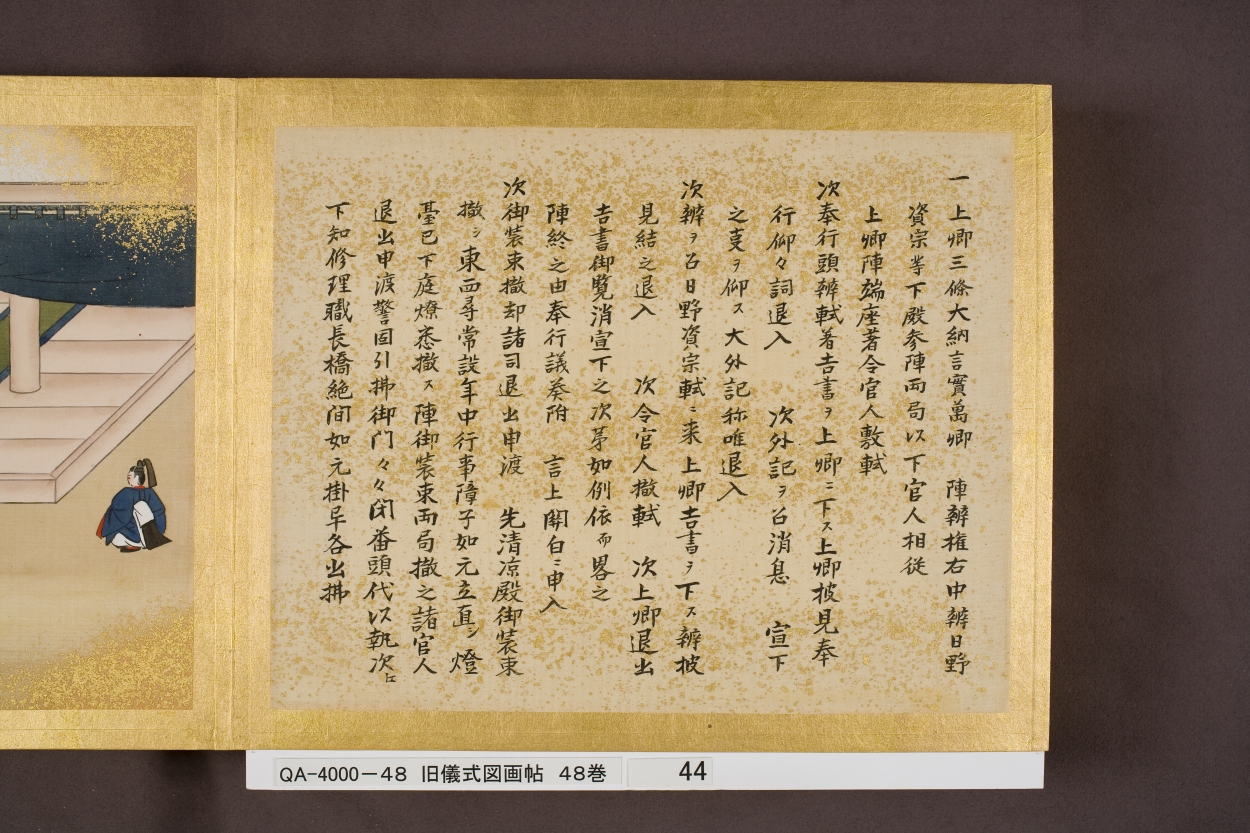 一 上卿三條大納言實萬卿 陣辨権右中辨日野
資宗等下殿参陣両局以下官人相従
上卿陣端座著令官人敷軾
次奉行頭辨軾著吉書ヲ上卿ニ下ス上卿披見奉
行仰々詞退入 次外記ヲ召消息 宣下
之㕝ヲ仰ス大外記称唯退入
次辨ヲ召日野資宗軾ニ来上卿吉書ヲ下ス辨披
見結之退入 次令官人撤軾 次上卿退出
吉書御覧消宣下之次第如例依而畧之
陣終之由奉行議奏附 言上関白ニ申入
次御装束撤却諸司退出申渡 先清凉殿御装束
撤シ東面尋常設年中行事障子如元立直シ燈
䑓已下庭燎悉撤ス陣御装束両局撤之諸官人
退出申渡警固引拂御門々々閉番頭代以執次江
下知修理職長橋絶間如元掛早各出拂
QA-4000-48 旧儀式図画帖 48巻 44